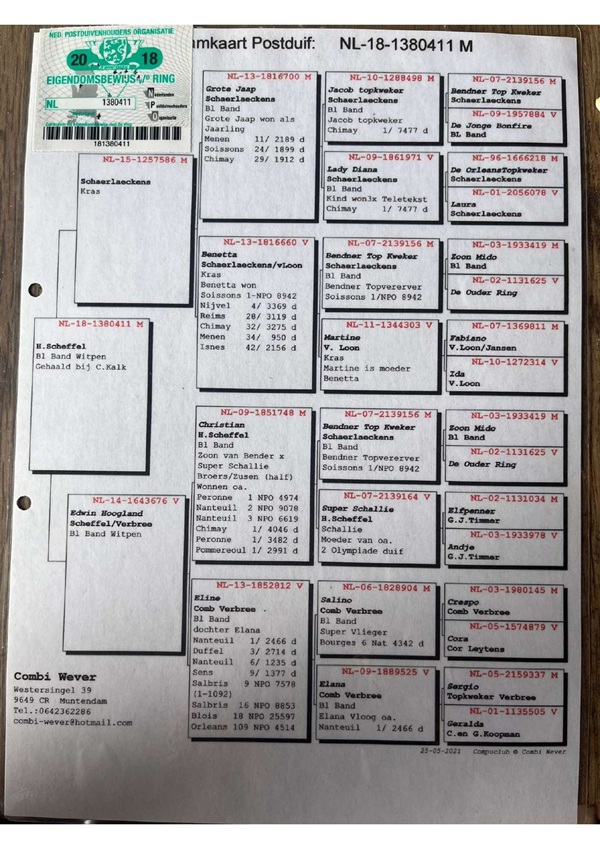 NED. POSTDUIVENHOUDERS ORGANISATIE
20 18
EIGENDOMSBEWIJS v/e RING
NL 1380411
Nederlandse
Postduivenhouders
Organisatie
181380411
amkaart Postduif: NL-18-1380411 M
NL-18-1380411 M
H.Scheffel
Bl Band Witpen
Gehaald bij C.Kalk
NL-15-1257586 M
Schaerlaeckens
Kras
NL-14-1643676 V
Edwin Hoogland
Scheffel/Verbree
Bl Band Witpen
NL-13-1816700 M
Grote Jaap
Schaerlaeckens
Bl Band
Grote Jaap won als
Jaarling
Menen 11/ 2189 d
Soissons 24/ 1899 d
Chimay 29/ 1912 d
NL-13-1816660 V
Benetta
Schaerlaeckens/vLoon
Kras
Benetta won
Soissons 1-NPO 8942
Nijvel 4/ 3369 d
Reims 28/ 3119 d
Chimay 32/ 3275 d
Menen 34/ 950 d
Isnes 42/ 2156 d
NL-09-1851748 M
Christian
H.Scheffel
Bl Band
Zoon van Bender x
Super Schallie
Broers/Zusen (half)
Wonnen oa.
Peronne 1 NPO 4974
Nanteuil 2 NPO 9078
Nanteuil 3 NPO 6619
Chimay 1/ 4046 d
Peronne 1/ 3482 d
Pommereoul 1/ 2991 d
NL-13-1852812 V
Eline
Comb Verbree
Bl Band
dochter Elana
Nanteuil 1/ 2466 d
Duffel 3/ 2714 d
Nanteuil 6/ 1235 d
Sens 9/ 1377 d
Salbris 9 NPO 7578
(1-1092)
Salbris 16 NPO 8853
Blois 18 NPO 25597
Orleans 109 NPO 4514
NL-10-1288498 M
Jacob topkweker
Schaerlaeckens
Bl Band
Jacob topkweker
Chimay 1/ 7477 d
NL-09-1861971 V
Lady Diana
Schaerlaeckens
Bl Band
Kind won3x Teletekst
Chimay 1/ 7477 d
NL-07-2139156 M
Bendner Top Kweker
Schaerlaeckens
Bl Band
Bendner Topvererver
Soissons 1/NPO 8942
NL-11-1344303 V
Martine
V. Loon
Kras
Martine is moeder
Benetta
NL-07-2139156 M
Bendner Top Kweker
Schaerlaeckens
Bl Band
Bendner Topvererver
Soissons 1/NPO 8942
NL-07-2139164 V
Super Schallie
H.Scheffel
Bl Band
Moeder van oa.
2 Olympiade duif
NL-06-1828904 M
Salino
Comb Verbree
Bl Band
Super Vlieger
Bourges 6 Nat 4342 d
NL-09-1889525 V
Elana
Comb Verbree
Bl Band
Elana Vloog oa.
Nanteuil 1/ 2466 d
NL-07-2139156 M
Bendner Top Kweker
Schaerlaeckens
NL-09-1957884 V
De Jonge Bonfire
BL Band
NL-96-1666218 M
De OrleansTopkweker
Schaerlaeckens
NL-01-2056078 V
Laura
Schaerlaeckens
NL-03-1933419 M
Zoon Mido
Bl Band
NL-02-1131625 V
De Ouder Ring
NL-07-1369811 M
Fabiano
V.Loon/Jansen
NL-10-1272314 V
Ida
V.Loon
NL-03-1933419 M
Zoon Mido
Bl Band
NL-02-1131625 V
De Ouder Ring
NL-02-1131034 M
Elfpenner
G.J.Timmer
NL-03-1933978 V
Andje
G.J.Timmer
NL-03-1980145 M
Crespo
Comb Verbree
NL-05-1574879 V
Cora
Cor Leytens
NL-05-2159337 M
Sergio
Topkweker Verbree
NL-01-1135505 V
Geralda
C.en G.Koopman
Combi Wever
Westersingel 39
9649 CR Muntendam
Tel.:0642362286
combi-wever@hotmail.com
25-05-2021 Compuclub © Combi Wever